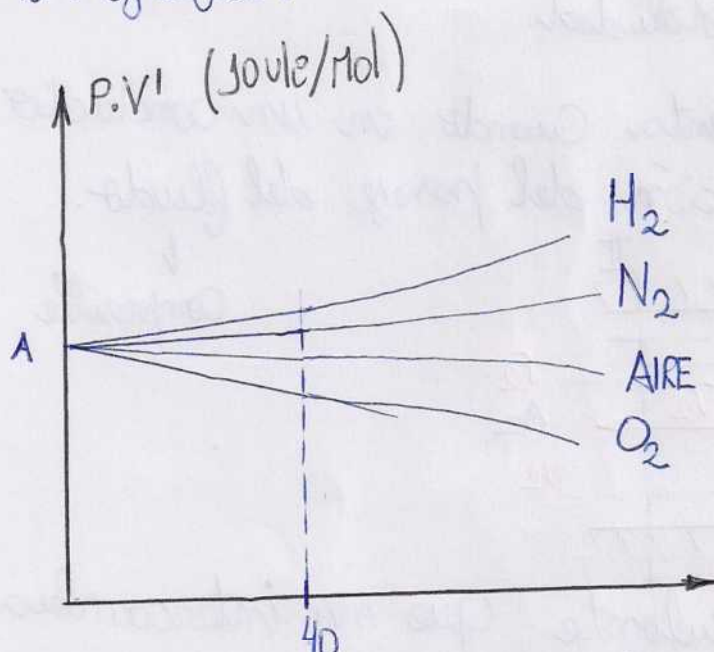 P.V' (Joule/Mol)
H2
N2
A
AIRE
O2
40